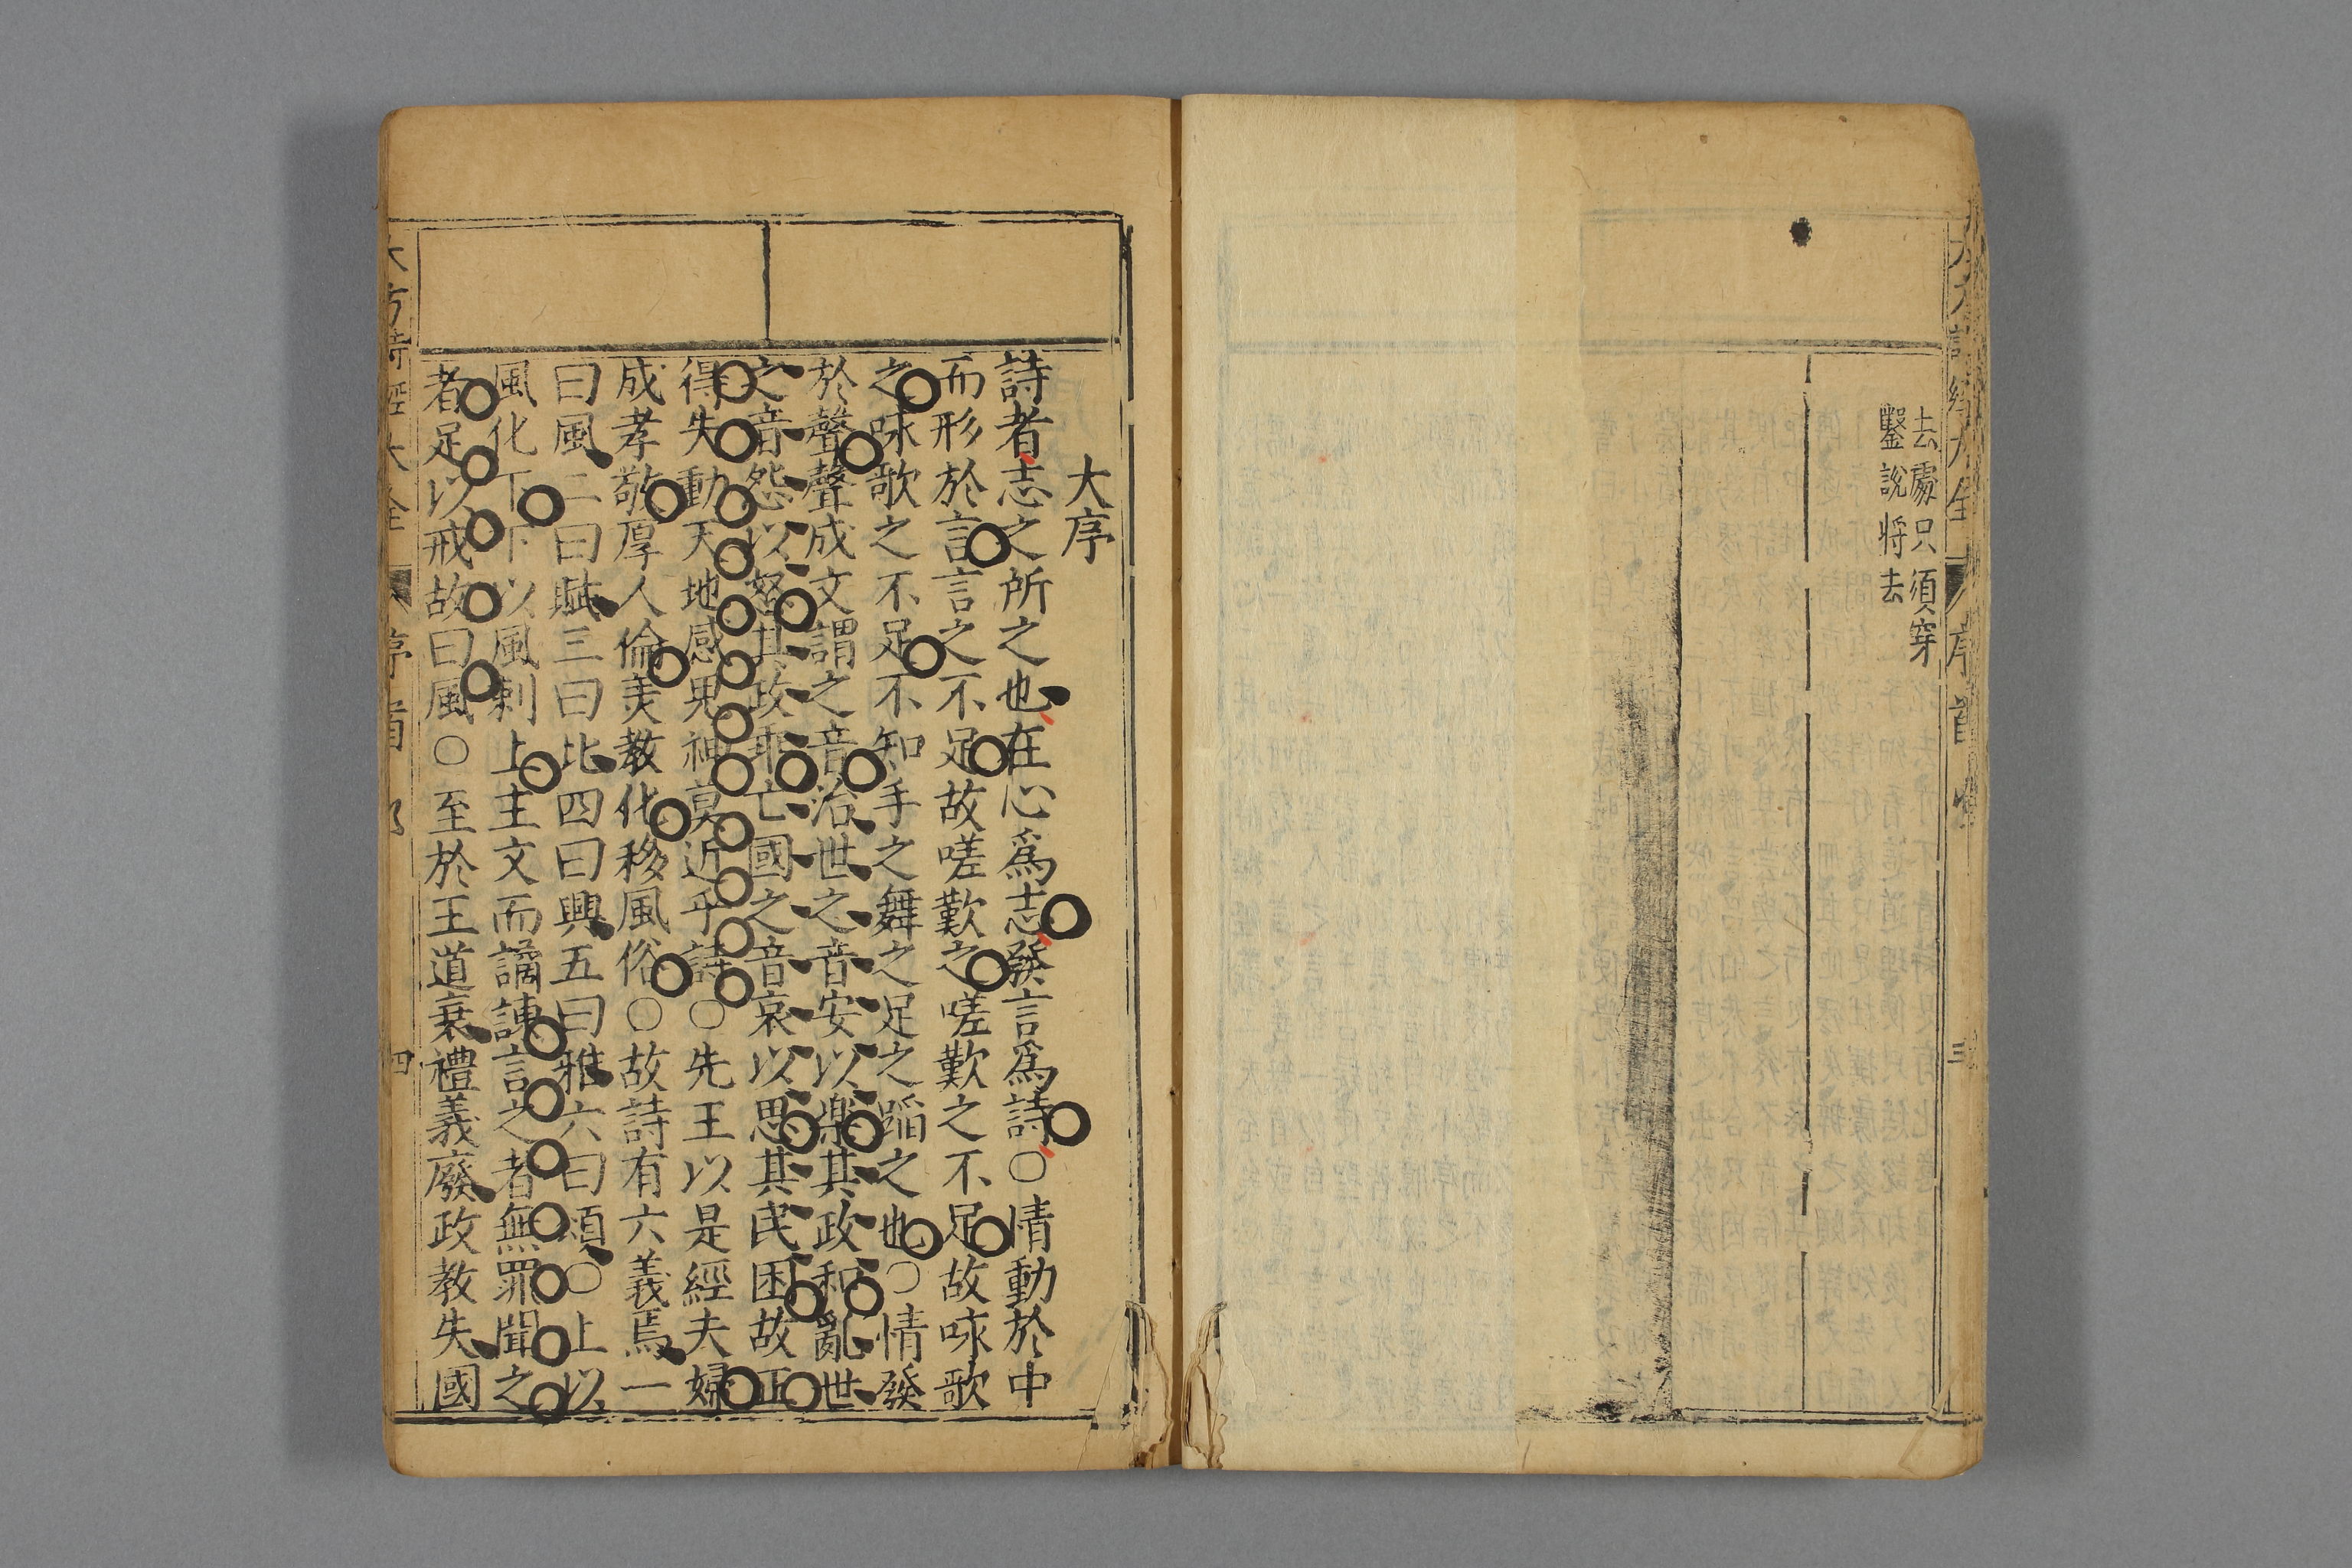 去處只須穿
鑿說將去
大序
詩者志之所之也在心爲志發言爲詩○情動於中
而形於言言之不足故嗟歎之嗟歎之不足故咏歌
之咏歌之不足不知手之舞之足之蹈之也○情發
於聲聲成文謂之音治世之音安以樂其政和亂世
之音怨以怒其政乖亡國之音哀以思其民困故正
得失動天地感鬼神莫近乎詩○先王以是經夫婦
成孝敬厚人倫美教化移風俗○故詩有六義焉一
曰風二曰賦三曰比四曰興五曰雅六曰頌○上以
風化下下以風刺上主文而譎諫言之者無罪聞之
者足以戒故曰風○至於王道衰禮義廢政教失國
大方詩經大全 序首 四